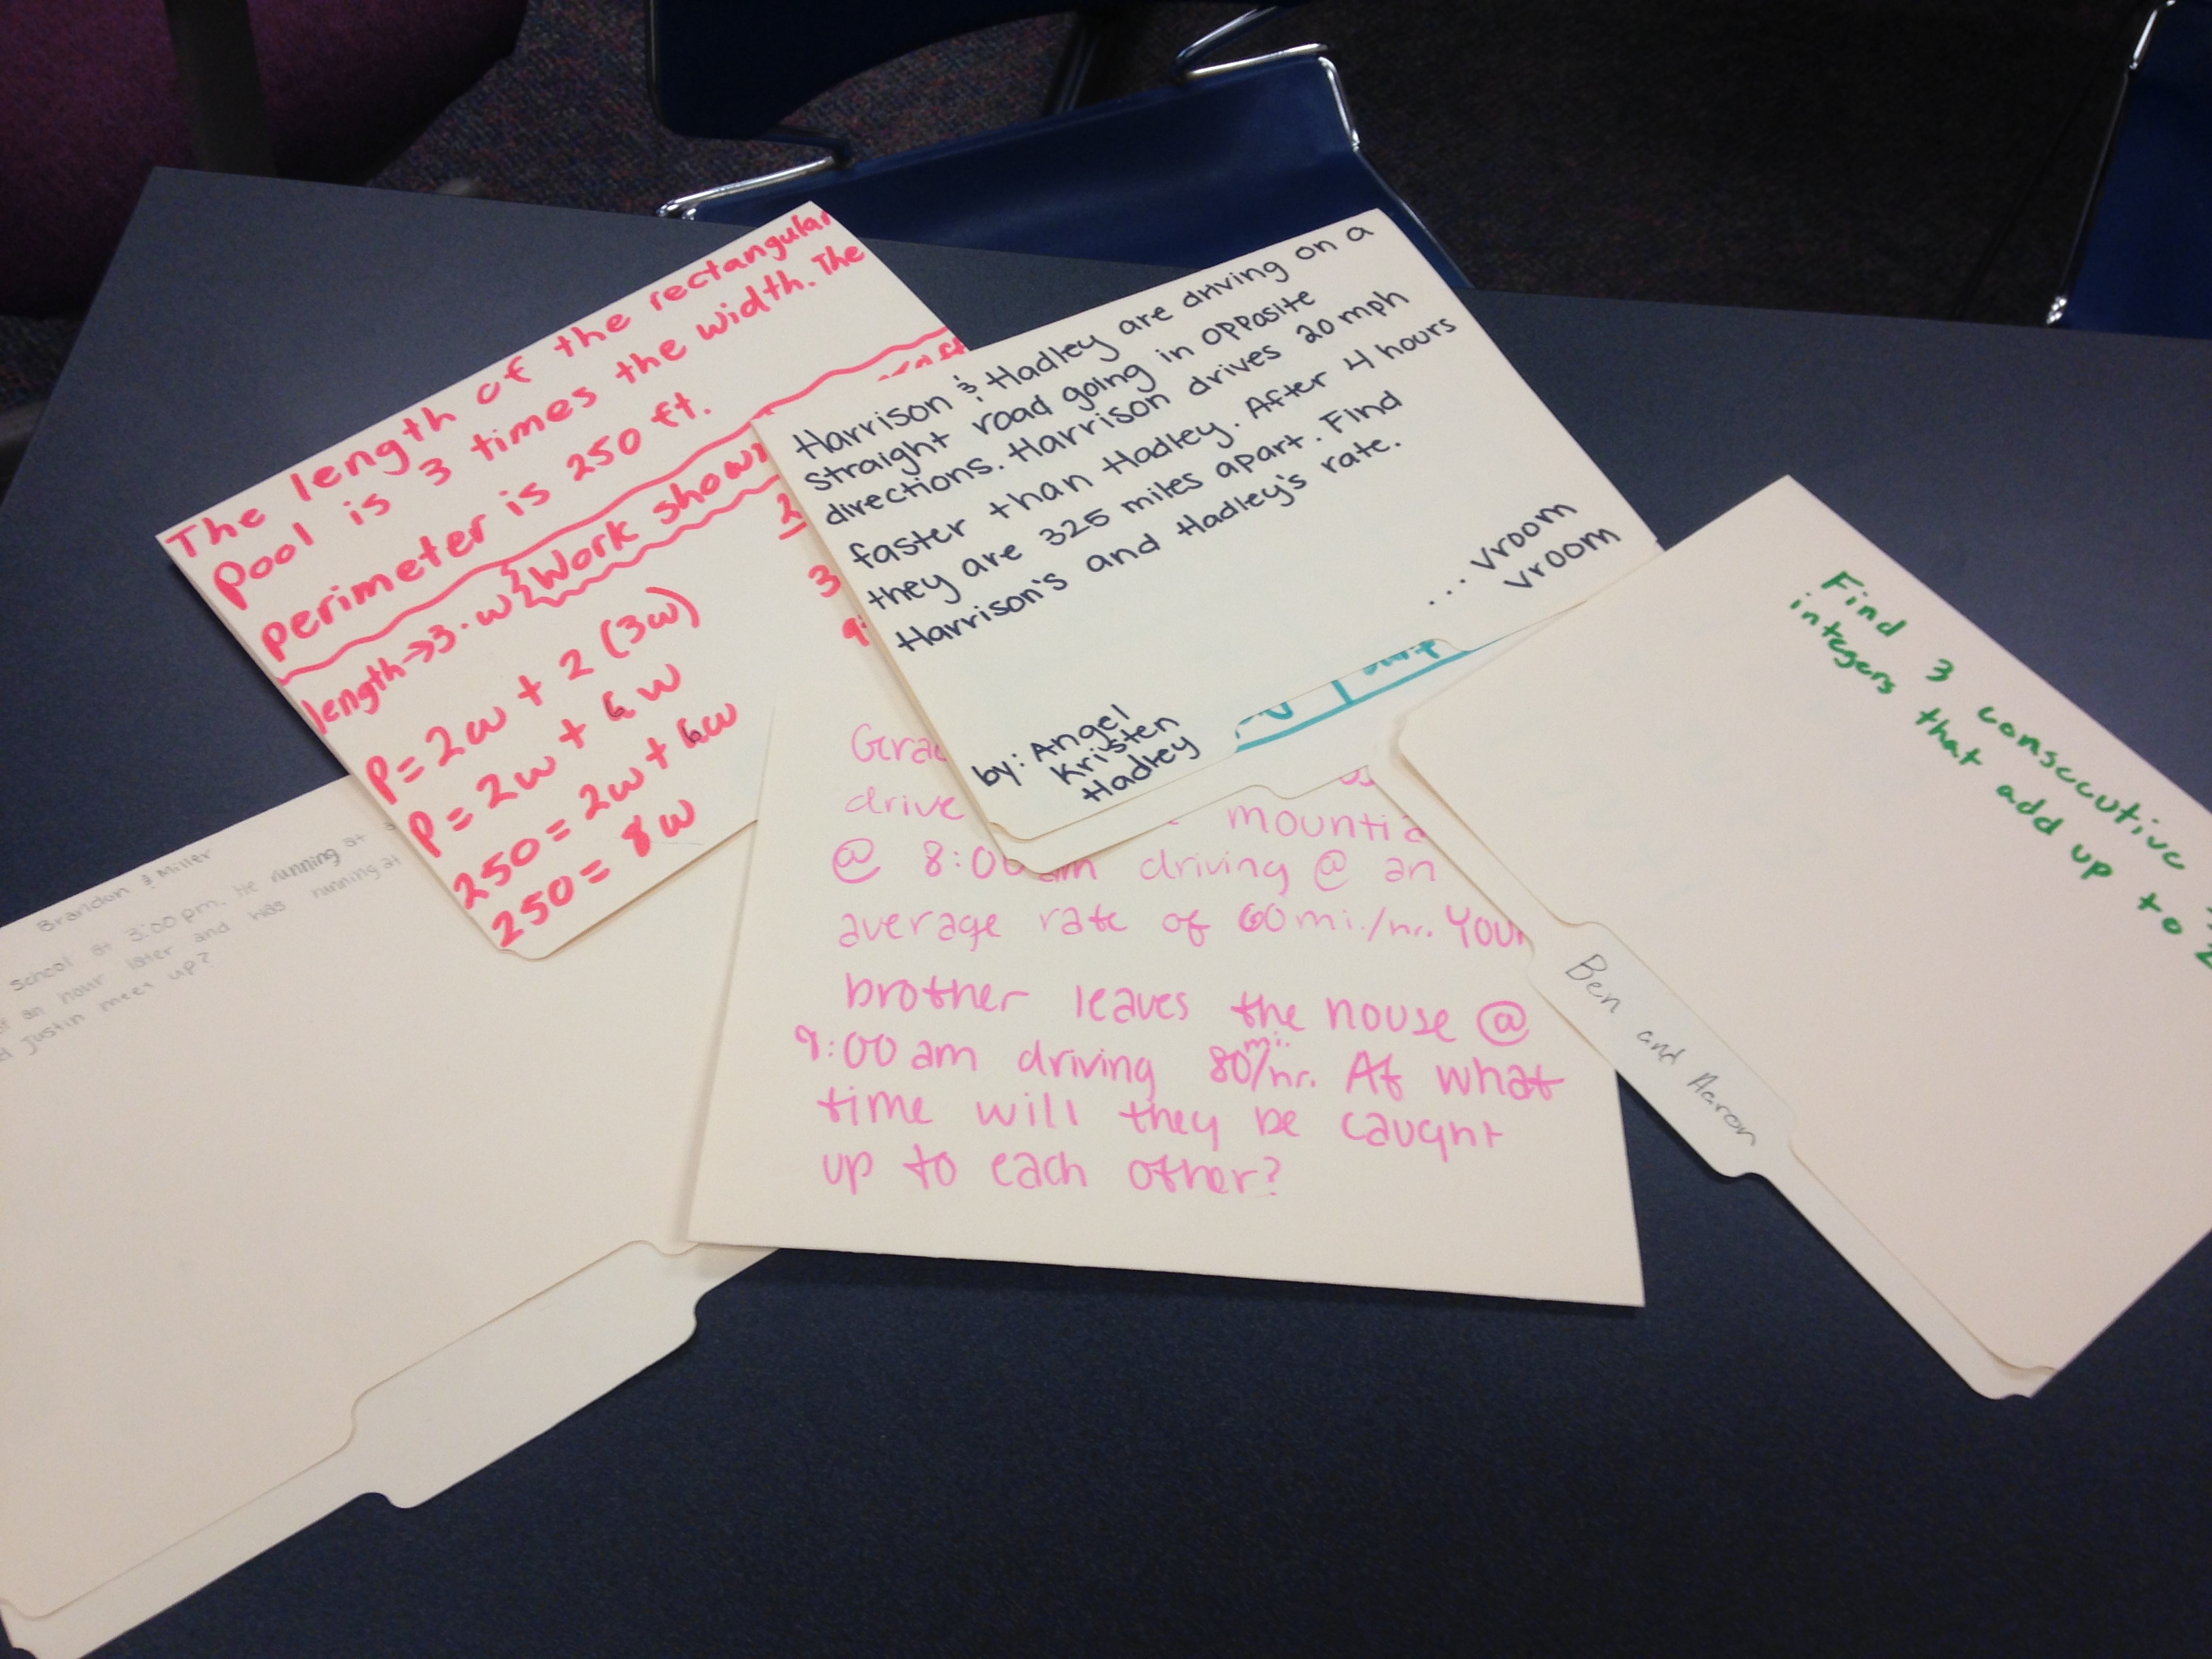 The length of the rectangular
pool is 3 times the width. The
perimeter is 250 ft.
length→3·w
Work shown
P=2w+2(3w)
P=2w+6w
250=2w+6w
250=8w
2
3
9
Harrison & Hadley are driving on a
straight road going in opposite
directions. Harrison drives 20 mph
faster than Hadley. After 4 hours
they are 325 miles apart. Find
Harrison's and Hadley's rate.
...vroom
vroom
by: Angel
Kristen
Hadley
Find 3 consecutive
integers that add up to
Ben and Aaron
drive mountia
@ 8:00 am driving @ an
average rate of 60mi./hr. Your
brother leaves the house @
9:00 am driving 80mi./hr. At what
time will they be caught
up to each other?
Brandon & Miller
School at 3:00 pm. He running at
an hour later and was running at
Justin meet up?